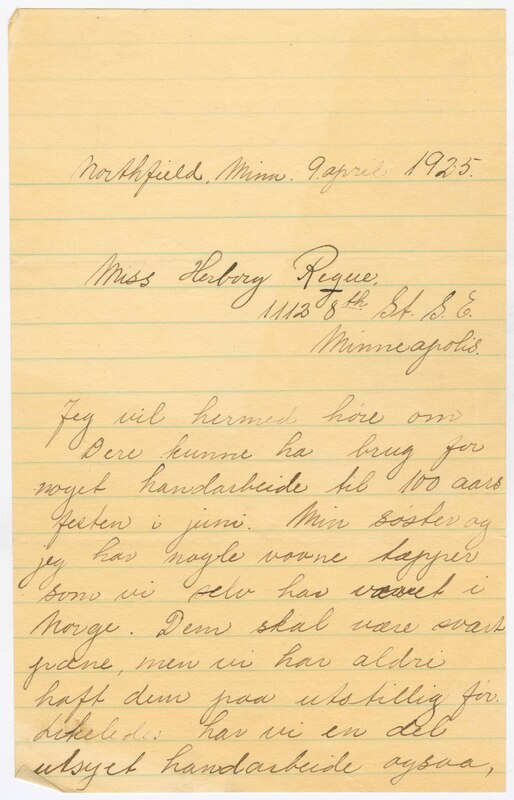 Northfield, Minn. 9 april 1925.
Miss Herborg Reque,
1112 8th St. S. E.
Minneapolis.
Jeg vil hermed høre om
Dere kunne ha brug for
noget handarbeide til 100 aars
festen i juni. Min søster og
jeg har nogle vovne tæpper
som vi selv har vævet i
Norge. Dem skal være svært
pæne, men vi har aldri
haft dem paa utstillig før.
Likeledes har vi en del
utsyet handarbeide ogsaa,